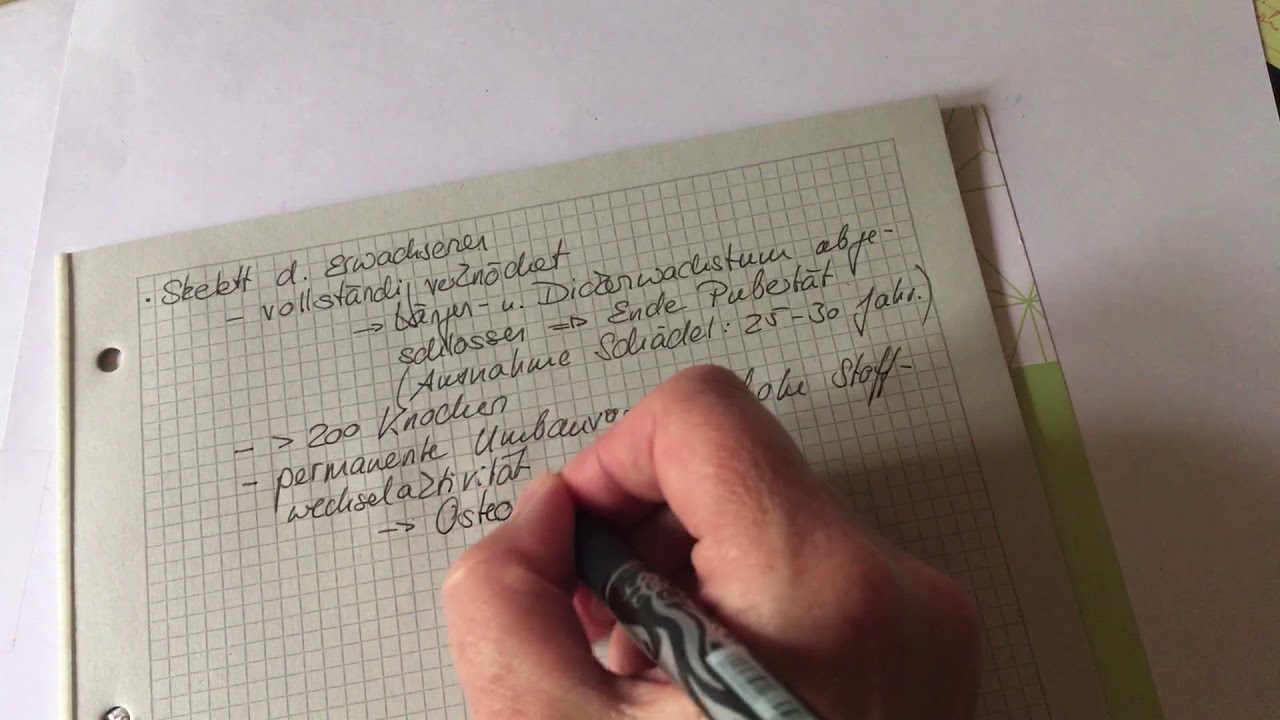 · Skelett d. Erwachsenen
- vollständig verknöchert
-> Längen- u. Dickenwachstum abge-
schlossen => Ende Pubertät
(Ausnahme Schädel: 25-30 Jahr.)
- > 200 Knochen
- permanente hohe Stoff-
wechselaktivität
-> Osteo